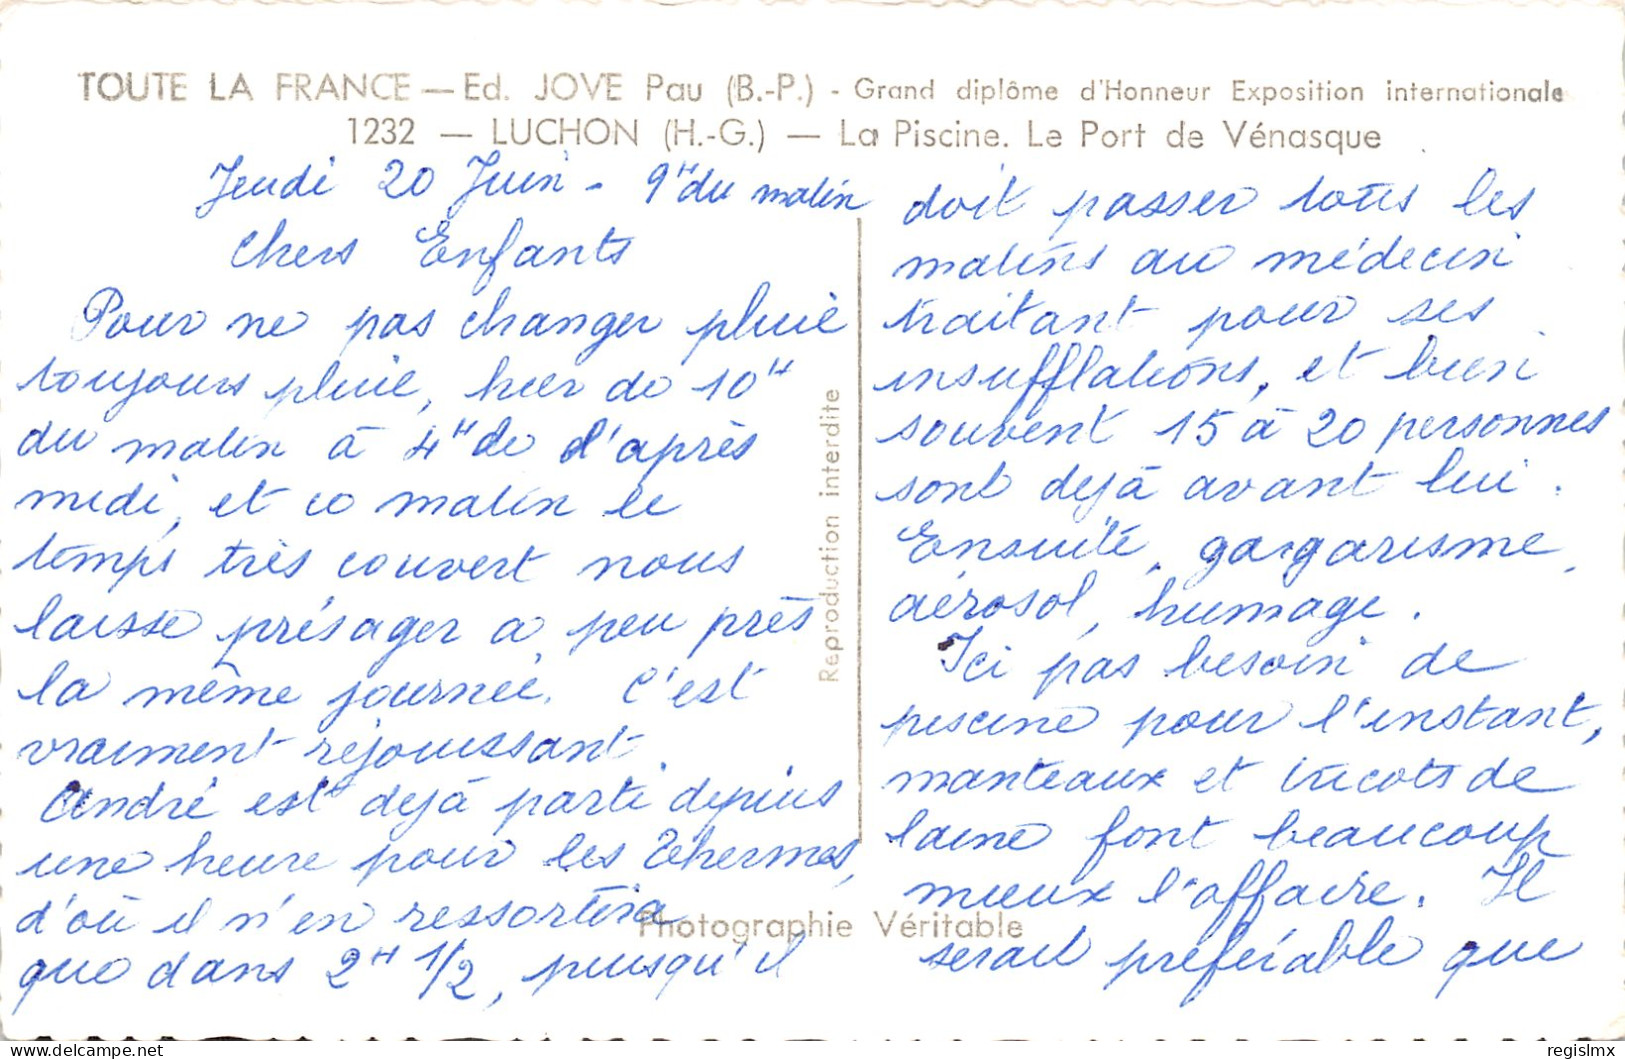 TOUTE LA FRANCE — Ed. JOVE Pau (B.-P.) - Grand diplôme d'Honneur Exposition internationale
1232 — LUCHON (H.-G.) — La Piscine. Le Port de Vénasque
Jeudi 20 Juin - 9H du matin
Chers Enfants
Pour ne pas changer pluie
toujours pluie, hier de 10H
du matin à 4H de l'après
midi, et ce matin le
temps très couvert nous
laisse présager a peu près
la même journée. C'est
vraiment réjouissant.
André est déjà parti depuis
une heure pour les Thermes,
d'où il n'en ressortira
que dans 2H 1/2, puisqu'il
Reproduction interdite
doit passer tous les
matins au médecin
traitant pour ses
insufflations, et bien
souvent 15 à 20 personnes
sont dejà avant lui.
Ensuite, gargarisme,
aérosol, humage.
Ici pas besoin de
piscine pour l'instant,
manteaux et tricots de
laine font beaucoup
mieux l'affaire. Il
serait préférable que
Photographie Véritable
delcampe.net
regislmx